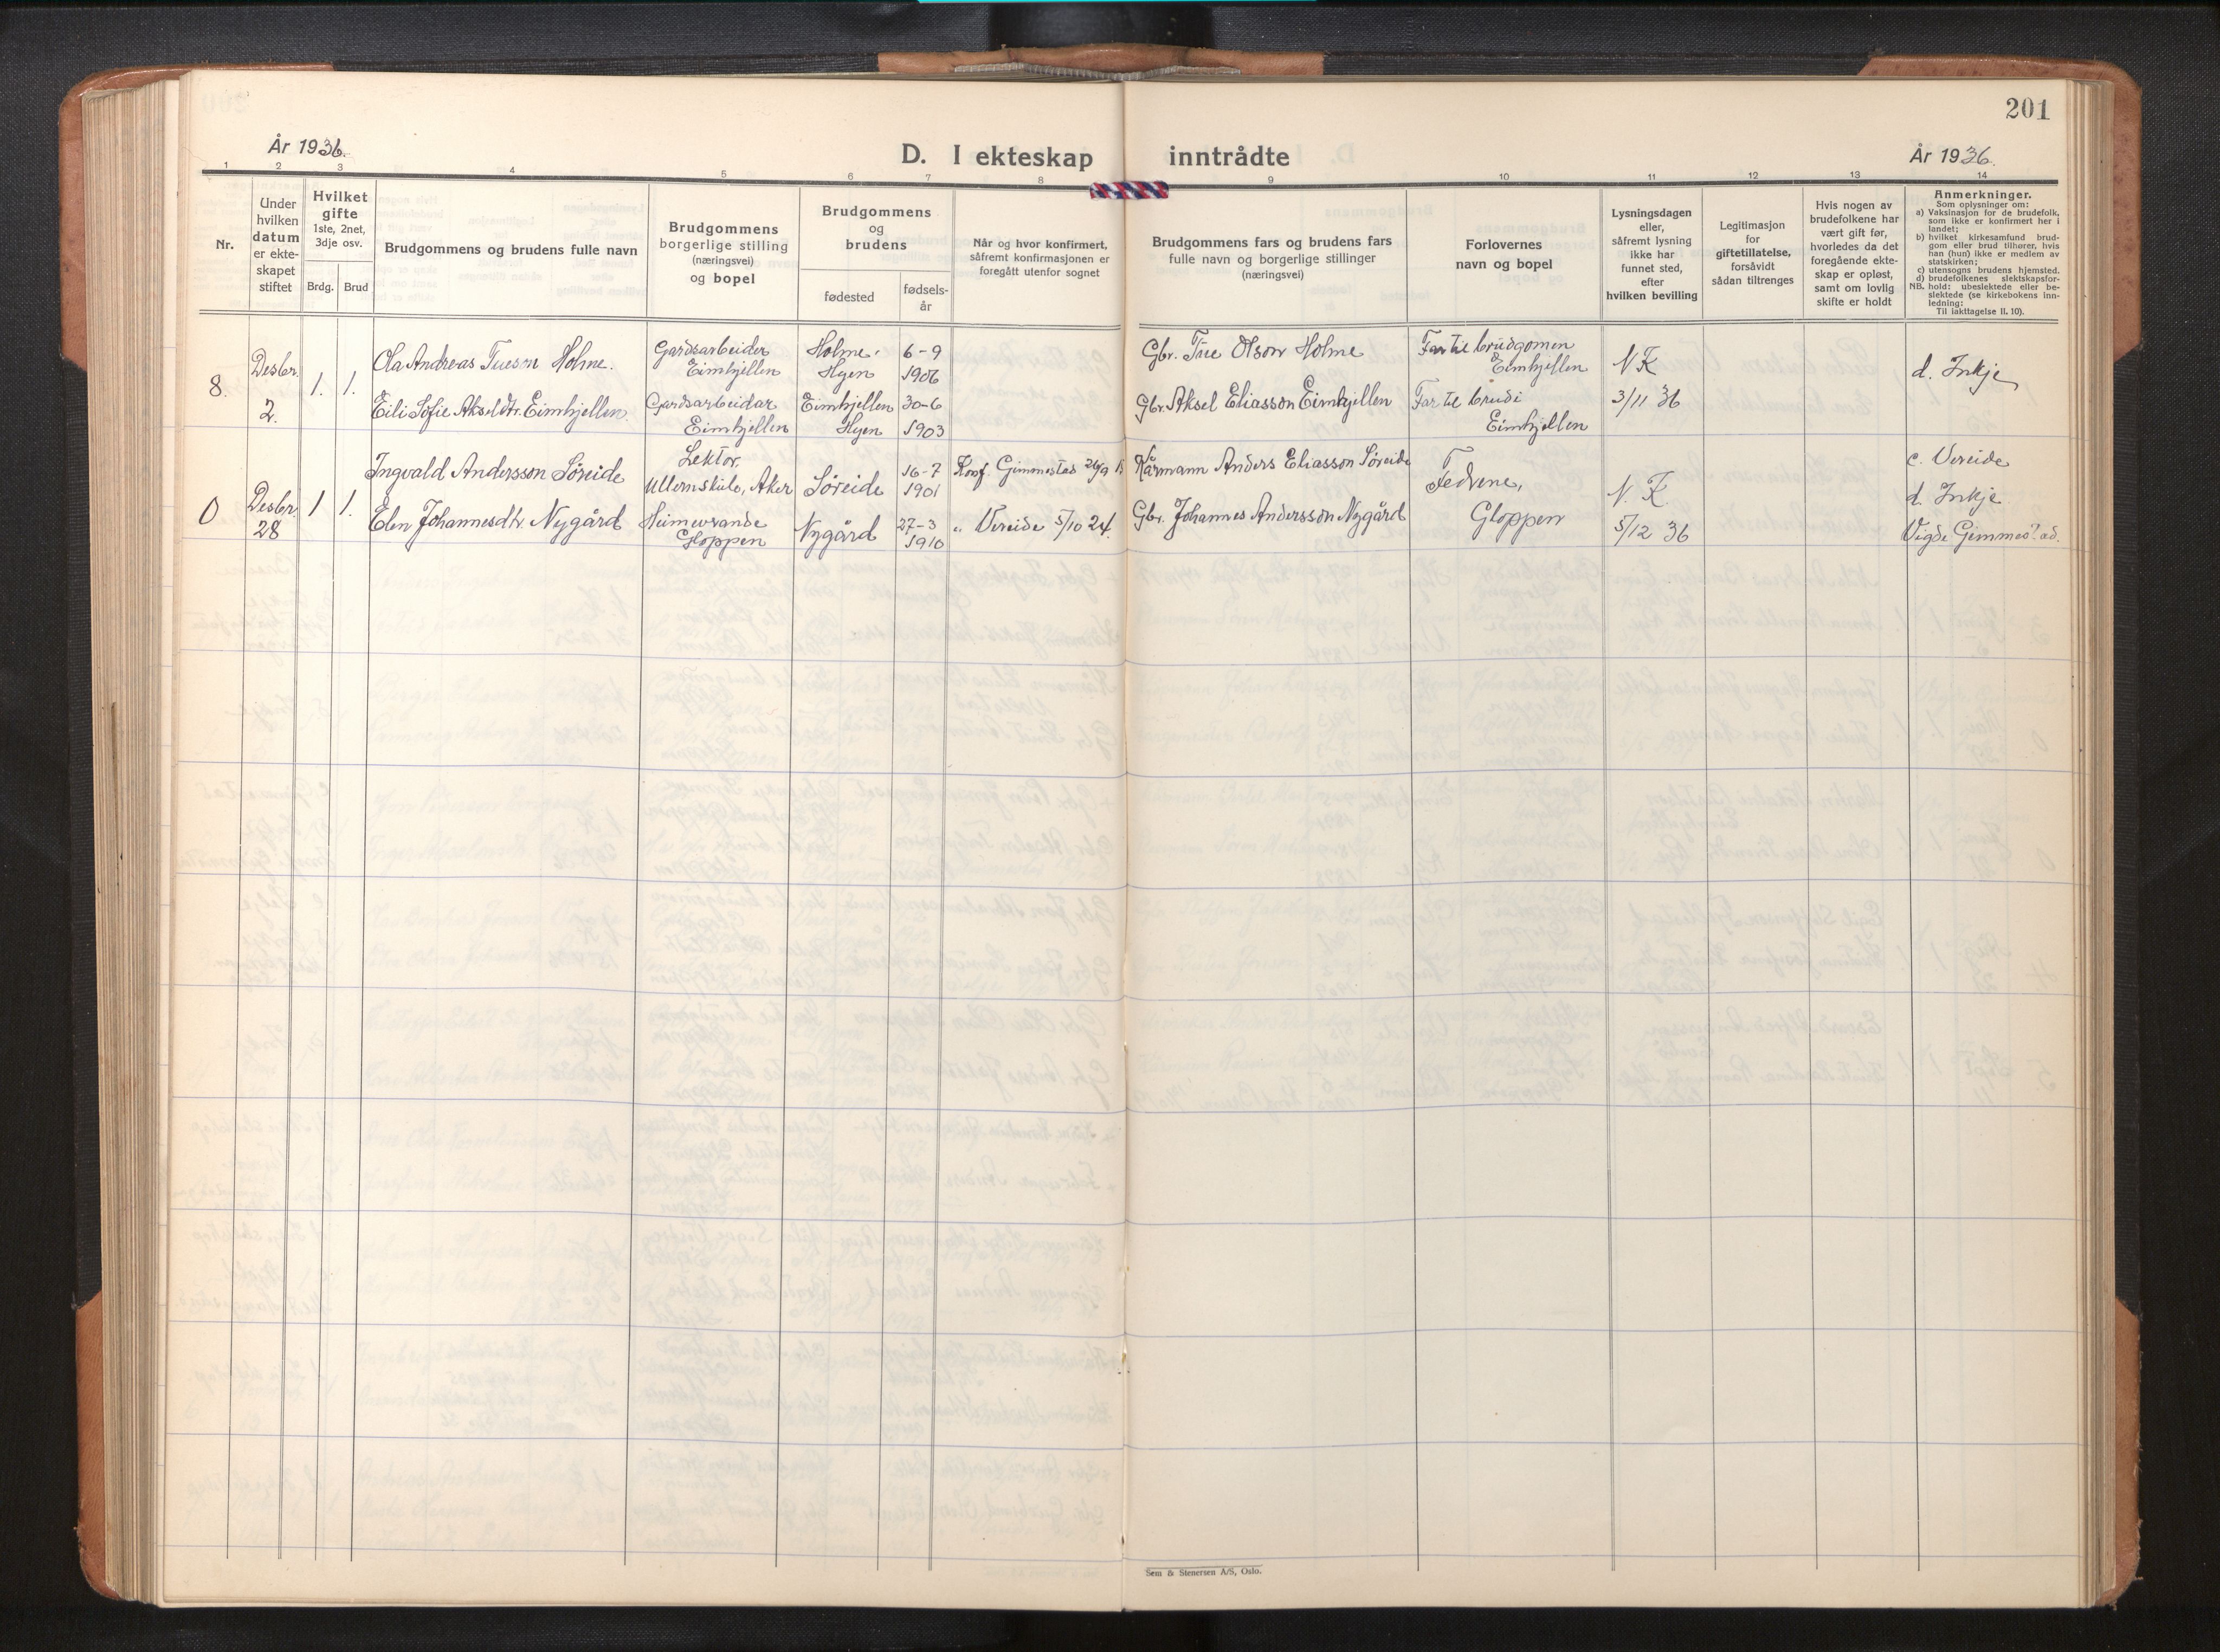 201
År 1936.
D. I ekteskap inntrådte
År 1936.
1 2 3 4 5 6 7 8 9 10 11 12 13 14
Nr.
Under
hvilken
datum
er ekte-
skapet
stiftet
Hvilket
gifte
1ste, 2net,
3dje osv.
Brdg. Brud
Brudgommens og brudens fulle navn
Brudgommens
borgerlige stilling
(næringsvei)
og bopel
Brudgommens
og
brudens
fødested
fødsels-
år
Når og hvor konfirmert,
såfremt konfirmasjonen er
foregått utenfor sognet
Brudgommens fars og brudens fars
fulle navn og borgerlige stillinger
(næringsvei)
Forlovernes
navn og bopel
Lysningsdagen
eller,
såfremt lysning
ikke har
funnet sted,
efter
hvilken bevilling
Legitimasjon
for
giftetillatelse,
forsåvidt
sådan tiltrenges
Hvis nogen av
brudefolkene har
vært gift før,
hvorledes da det
foregående ekte-
skap er opløst,
samt om lovlig
skifte er holdt
Anmerkninger.
Som oplysninger om:
a) Vaksinasjon for de brudefolk,
som ikke er konfirmert her i
landet;
b) hvilket kirkesamfund brud-
gom eller brud tilhører, hvis
han (hun) ikke er medlem av
statskirken;
c) utensogns brudens hjemsted.
d) brudefolkenes slektskapsfor-
NB. hold: ubeslektede eller be-
slektede (se kirkebokens inn-
ledning:
Til iakttagelse II. 10).
8.
Desbr.
2.
1. 1.
Ola Andreas Tueson Holme.
Eili Sofie Akseldtr. Eimhjellen
Gardsarbeider
Eimhjellen
Gardsarbeidar
Eimhjellen
Holme,
Hyen
Eimhjellen
Hyen
6-9
1906
30-6
1903
Gbr. Tue Olson Holme
Gbr. Aksel Eliasson Eimhjellen
Far til brudgomen
Eimhjellen
Far til brudi
Eimhjellen
N K
3/11 36
d. Inkje
0
Desbr.
28
1 1.
Ingvald Andersson Søreide
Elen Johannesdtr. Nygård
Lektor,
Ullernskule, Aker
Heimeverande
Gloppen
Søreide
Nygård
16-7
1901
27-3
1910
Konf. Gimmestad 26/9
" Vereide 5/10 24.
Kårmann Anders Eliasson Søreide
Gbr. Johannes Andersson Nygård
Fedrene,
Gloppen
N. K.
5/12 36
c. Vereide
d. Inkje
Vigde Gimmes?ad.
Sem & Stenersen A/S, Oslo.